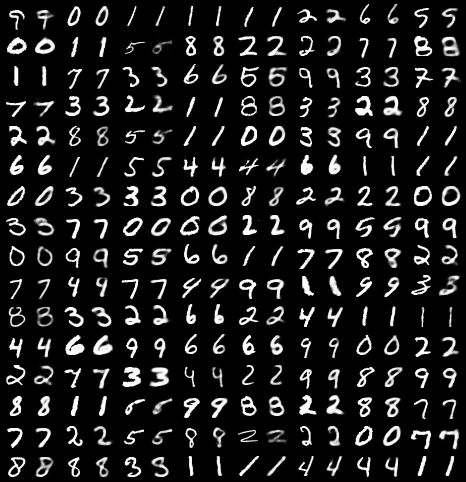 9 9 0 0 1 1 1 1 1 1 2 2 6 6 5 5
0 0 1 1 5 5 8 8 2 2 2 2 7 7 8 8
1 1 7 7 3 3 6 6 5 5 9 9 3 3 7 7
7 7 3 3 2 2 1 1 8 8 3 3 2 2 8 8
2 2 8 8 5 5 1 1 0 0 3 3 9 9 1 1
6 6 1 1 5 5 4 4 4 4 6 6 1 1 1 1
0 0 3 3 3 3 0 0 8 8 2 2 2 2 0 0
3 3 7 7 0 0 0 0 2 2 9 9 5 5 9 9
0 0 9 9 5 5 6 6 1 1 7 7 8 8 2 2
7 7 4 9 7 7 9 9 9 9 1 1 9 9 3 3
8 8 3 3 2 2 6 6 2 2 4 4 1 1 1 1
4 4 6 6 9 9 6 6 6 6 9 9 0 0 2 2
2 2 7 7 3 3 4 4 2 2 9 9 8 8 9 9
8 8 1 1 5 5 9 9 8 8 2 2 8 8 7 7
7 7 2 2 5 5 8 8 2 2 2 2 0 0 7 7
8 8 8 8 3 3 1 1 1 1 4 4 4 4 1 1